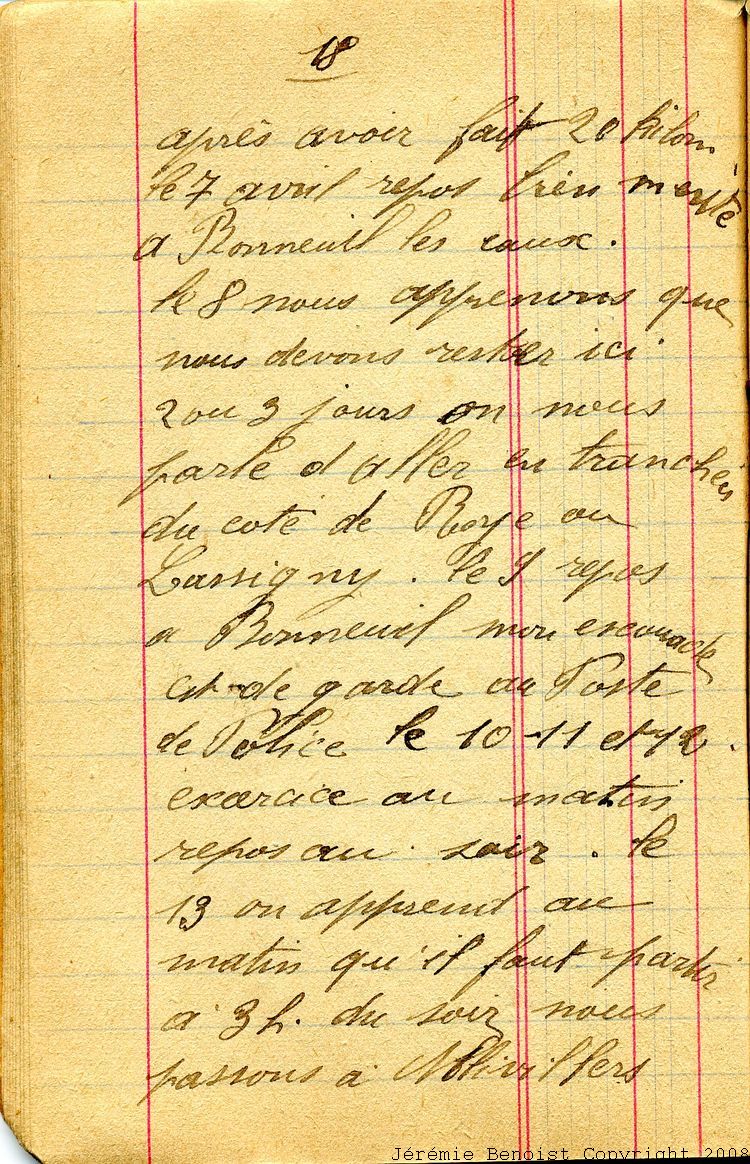 18
après avoir fait 20 kilom.
le 7 avril repos bien mérité
a Bonneuil les eaux.
le 8 nous apprenons que
nous devons rester ici
2 ou 3 jours on nous
parle d aller en tranchées
du coté de Roye ou
Lassigny. le 9 repos
a Bonneuil mon escouade
est de garde au Poste
de Police le 10-11 et 12.
exercice au matin
repos au soir. le
13 on apprend au
matin qu'il faut partir
a 3 h. du soir nous
passons a
Jérémie Benoist Copyright 2008